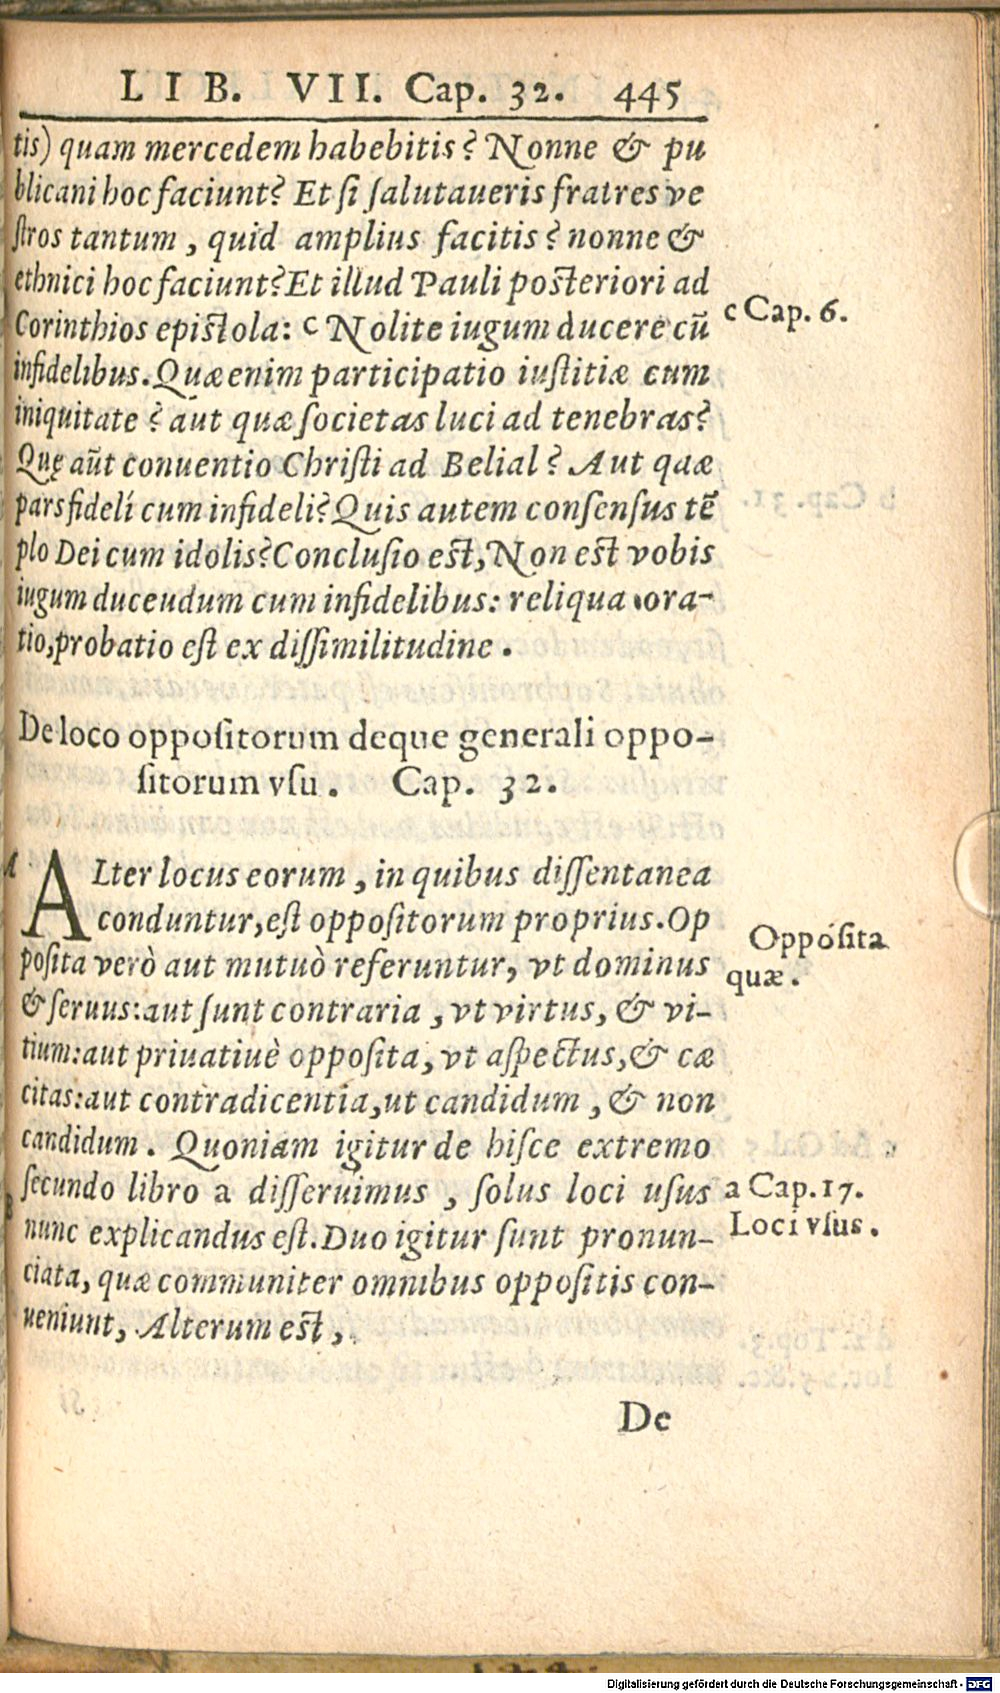 LIB. VII. Cap. 32. 445
tis) quam mercedem habebitis? Nonne & pu
blicani hoc faciunt? Et si ſalutaueris fratres ve
ſtros tantum, quid amplius facitis? nonne &
ethnici hoc faciunt? Et illud Pauli poſteriori ad
Corinthios epiſtola: c Nolite iugum ducere cū
infidelibus. Quæ enim participatio iuſtitiæ cum
iniquitate? aut quæ ſocietas luci ad tenebras?
Quę aūt conuentio Chriſti ad Belial? Aut quæ
pars fideli cum infideli? Quis autem conſenſus tē
plo Dei cum idolis? Concluſio eſt, Non eſt vobis
iugum ducendum cum infidelibus: reliqua ora-
tio, probatio eſt ex diſſimilitudine.
c Cap. 6.
De loco oppoſitorum deque generali oppo-
ſitorum vſu. Cap. 32.
A ALter locus eorum, in quibus diſſentanea
conduntur, eſt oppoſitorum proprius. Op
poſita verò aut mutuò referuntur, vt dominus
& ſeruus: aut ſunt contraria, vt virtus, & vi-
tium: aut priuatiuè oppoſita, vt aſpectus, & cæ
citas: aut contradicentia, ut candidum, & non
candidum. Quoniam igitur de hiſce extremo
ſecundo libro a diſſeruimus, ſolus loci uſus
B nunc explicandus eſt. Duo igitur ſunt pronun-
ciata, quæ communiter omnibus oppoſitis con-
ueniunt, Alterum eſt,
Oppoſita
quæ.
a Cap. 17.
Loci vſus.
De
Digitalisierung gefördert durch die Deutsche Forschungsgemeinschaft - DFG